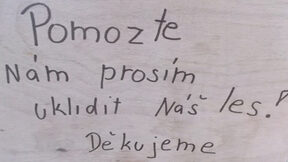 Pomozte
Nám prosím
uklidit Náš les!
Děkujeme